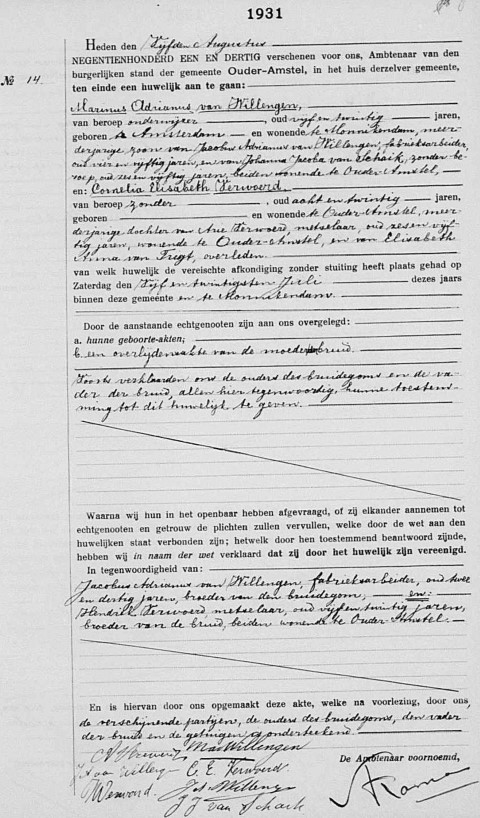 1931
№ 14.
Heden den Vijfden Augustus
NEGENTIENHONDERD EEN EN DERTIG verschenen voor ons, Ambtenaar van den
burgerlijken stand der gemeente Ouder-Amstel, in het huis derzelver gemeente,
ten einde een huwelijk aan te gaan:
Marinus Adrianus van Willengen,
van beroep onderwijzer, oud vijf en twintig jaren,
geboren te Amsterdam en wonende te Monnikendam, meer-
derjarige zoon van Jacobus Adrianus van Willengen, fabrieksarbeider,
oud vier en vijftig jaren, en van Johanna Jacoba van Schaik, zonder be-
roep, oud zes en vijftig jaren, beiden wonende te Ouder-Amstel,
en: Cornelia Elisabeth Verwoerd.
van beroep zonder, oud acht en twintig jaren,
geboren en wonende te Ouder-Amstel, meer-
derjarige dochter van Arie Verwoerd, metselaar, oud zes en vijf-
tig jaren, wonende te Ouder-Amstel, en van Elisabeth
Anna van Tregt, overleden.
van welk huwelijk de vereischte afkondiging zonder stuiting heeft plaats gehad op
Zaterdag den Vijf en twintigsten Juli dezes jaars
binnen deze gemeente en te Monnikendam.
Door de aanstaande echtgenooten zijn aan ons overgelegd:
a. hunne geboorte-akten;
b. een overlijdensakte van de moeder bruid.
Voorts verklaarden ons de ouders des bruidegoms en de va-
der der bruid, allen hier tegenwoordig, hunne toestem-
ming tot dit huwelijk te geven.
Waarna wij hun in het openbaar hebben afgevraagd, of zij elkander aannemen tot
echtgenooten en getrouw de plichten zullen vervullen, welke door de wet aan den
huwelijken staat verbonden zijn; hetwelk door hen toestemmend beantwoord zijnde,
hebben wij in naam der wet verklaard dat zij door het huwelijk zijn vereenigd.
In tegenwoordigheid van:
Jacobus Adrianus van Willengen, fabrieksarbeider, oud twee
en dertig jaren, broeder van den bruidegom, en:
Hendrik Verwoerd metselaar, oud vijf en twintig jaren,
broeder van de bruid, beiden wonende te Ouder-Amstel.
En is hiervan door ons opgemaakt deze akte, welke na voorlezing, door ons,
de verschijnende partijen, de ouders des bruidegoms, den vader
der bruid en de getuigen is onderteekend.
A Verwoerd MavWillengen
De Ambtenaar voornoemd,
C. E. Verwoerd.
HVerwoerd. Willengen
J J van Schaik